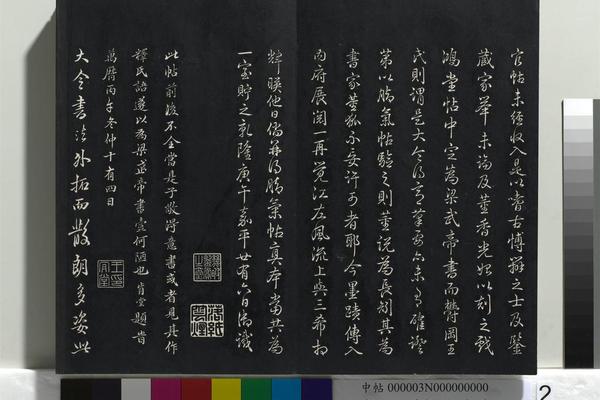 官帖未經收入是以古博雅之士及鑒
藏家畢未論及董香光始以刻之戲
鴻堂帖中定為梁武帝書而鬱岡王
氏則謂是大令得意筆要亦未有確證
第以腳氣帖驗之則董說為長其為
書家董狐不妄許可者耶今墨蹟傳入
內府展閱一再覺江左風流上與三希相
輝暎他日儻并得腳氣帖真本當共為
一室貯之乾隆庚午嘉平廿有六日御識
落紙雲煙
此帖前後不全當是子敬得意書或者見其作
釋氏語遂以為梁武帝書定何陋也肯堂題時
萬曆丙午冬仲十有四日
大令書法外拓而散朗多姿此
中帖 000003N000000000
2